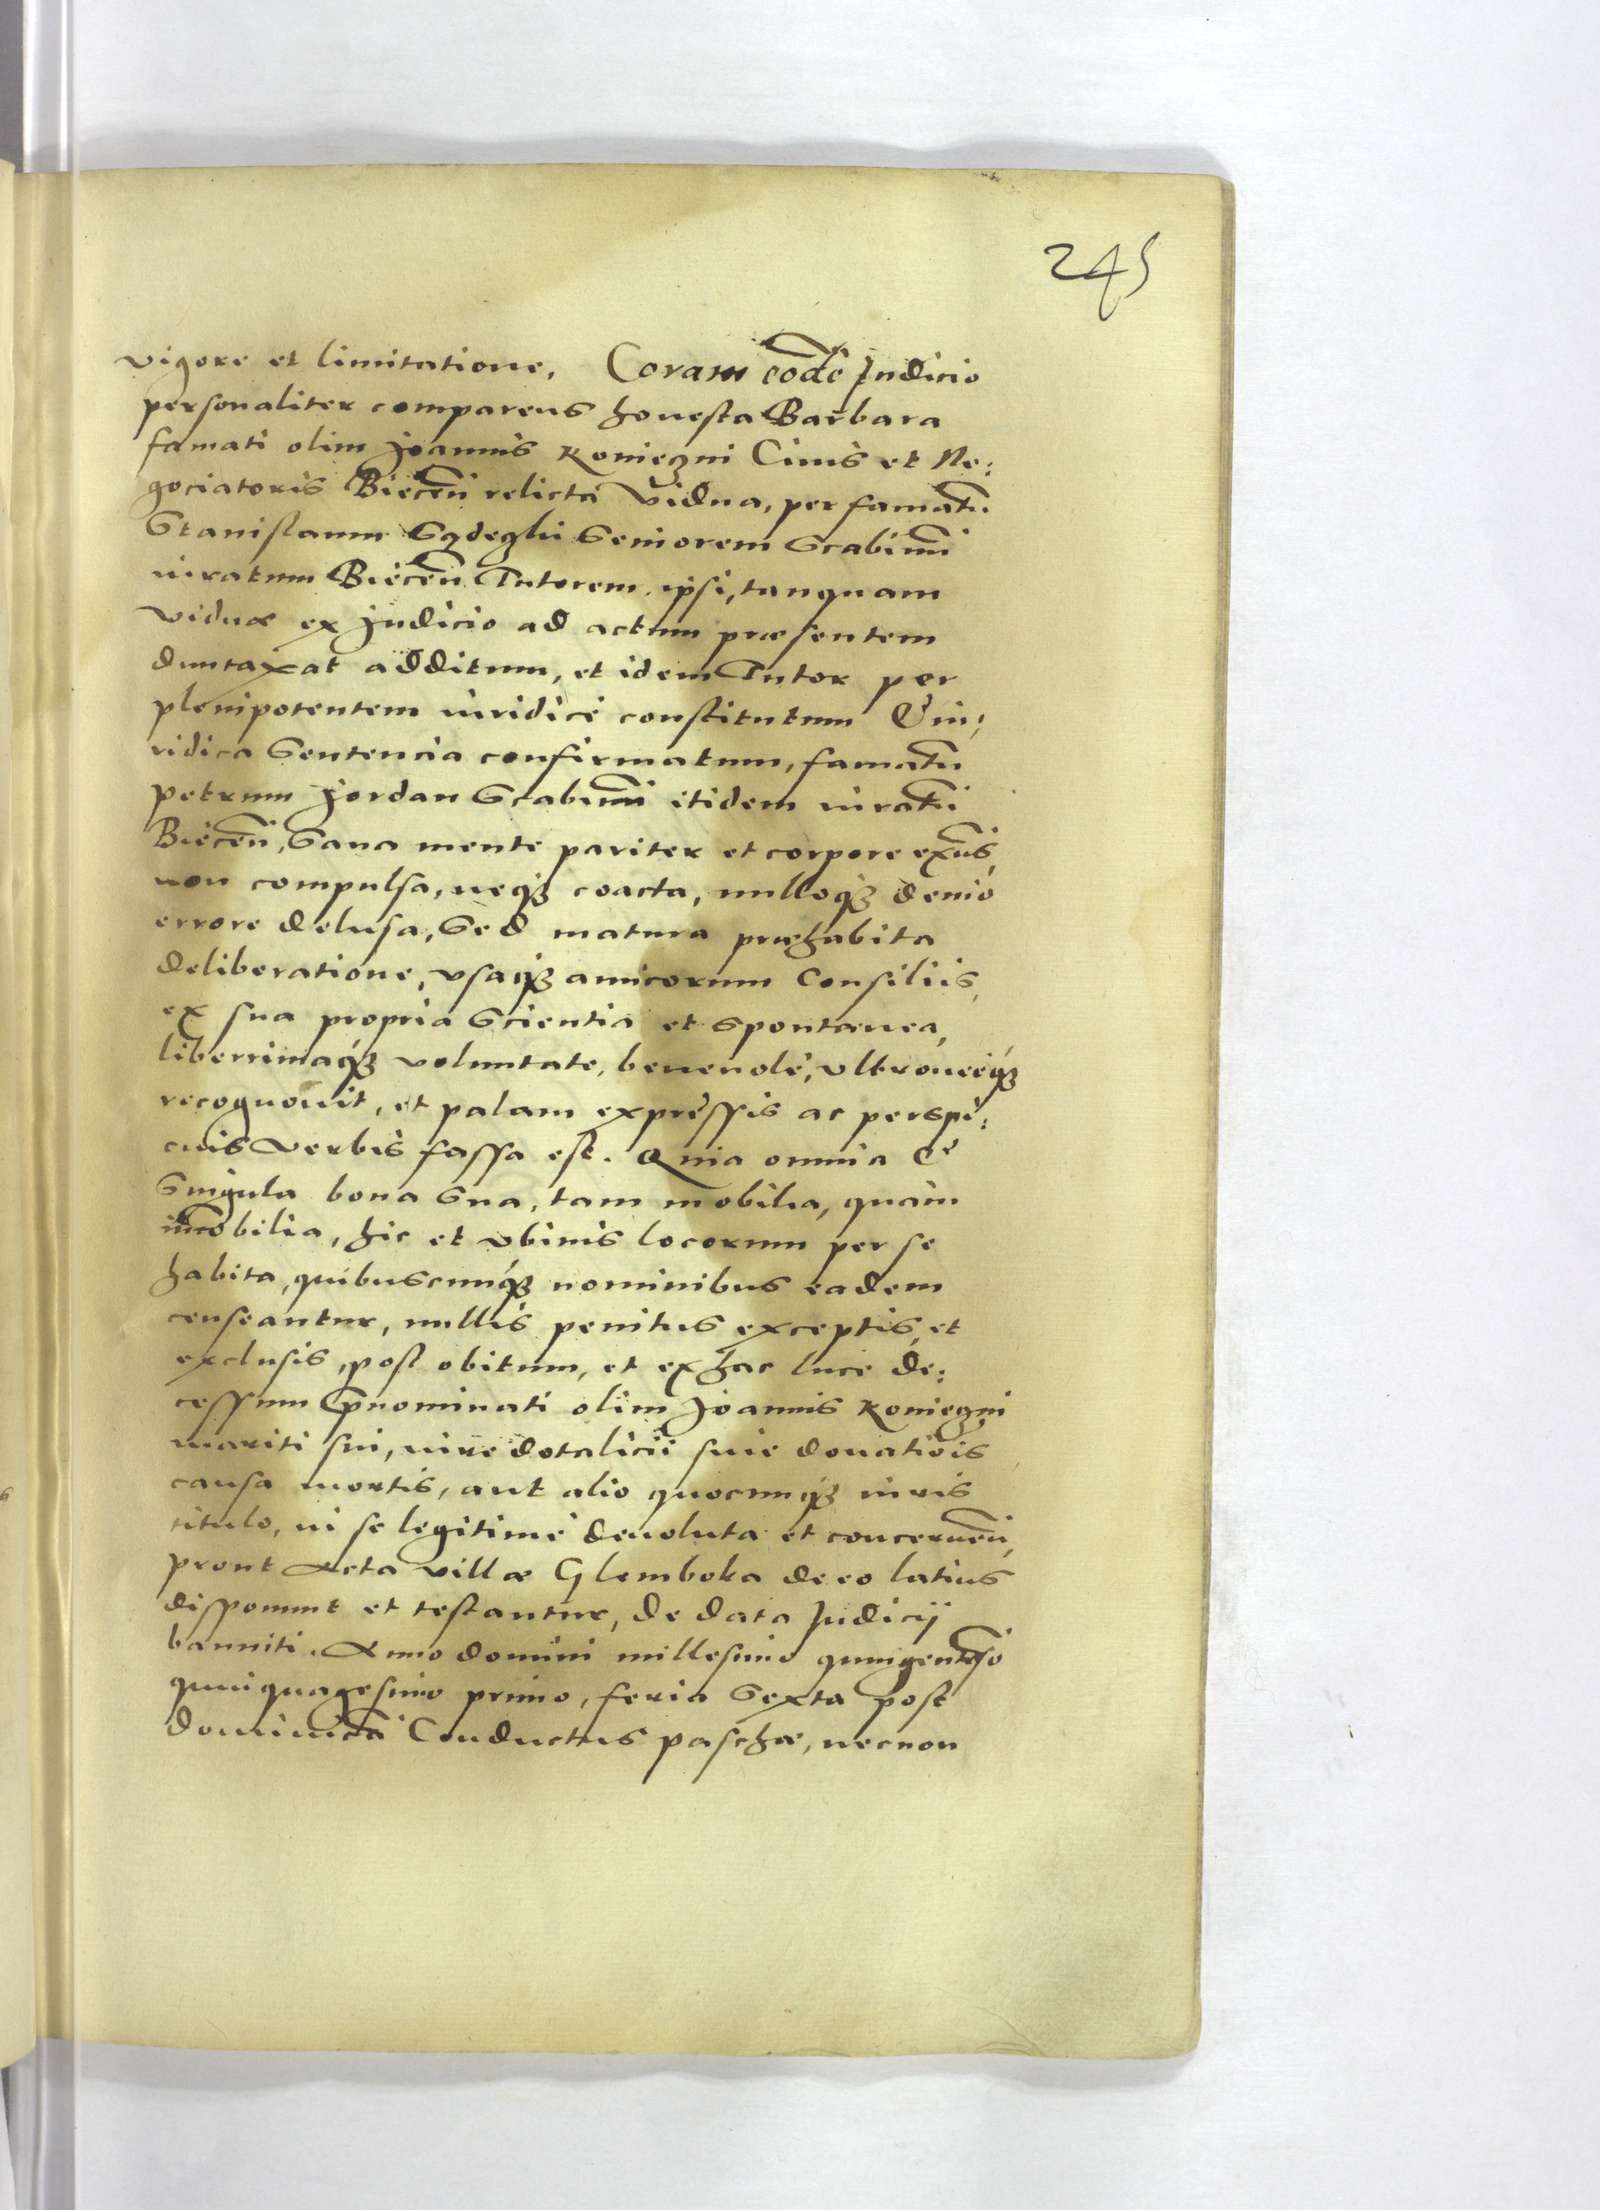 245
vigore et limitatione, Coram eodē Judicio
personaliter comparens honesta Barbara
famati olim Joannis Koniegni Ciuis et Ne:
gociatoris Biecen̄ relicta Vidua, per famatū
Stanislaum Scabinū
iuratum Biecen̄ Tutorem ipsi, tanquam
viduæ ex Judicio ad actum præsentem
duntaxat additum, et idem Tutor per
plenipotentem iuridicè constitutum & iu:
ridica Sentencia confirmatum, famatū
petrum Jordan Scabinū itidem iuratū
Biecen̄, Sana mente pariter et corpore exn̄s,
non compulsa, neq3 coacta, nulloq3 deuio
errore delusa, Sed matura præhabita
deliberatione, vsaq3 amicorum Consiliis,
ex sua propria Scientia et spontanea,
liberrimaq3 voluntate, beneuolè, vltroneéq3
recognouit, et palam expressis ac perspi:
cuis Verbis fassa est. Quia omnia &
Singula bona Sua, tam mobilia, quàm
im̄obilia, hic et vbiuis locorum per se
habita, quibuscumq3 nominibus eadem
censeantur, nullis penitus exceptis, et
exclusis, post obitum, et ex hac luce de:
cessum p̄nominati olim Joannis Koniegni
mariti sui, iure dotalicii siue donatiōis
causa mortis, aut alio quocumq3 iuris
titulo, in se legitimè deuoluta et concernen̄,
prout Acta villæ Glemboka de eo latius
disponunt et testantur, de data Judicij
banniti. Anno domini millesimo quingentēsō
quinquagesimo primo, feria Sexta post
dominicā Conductus paschæ, necnon